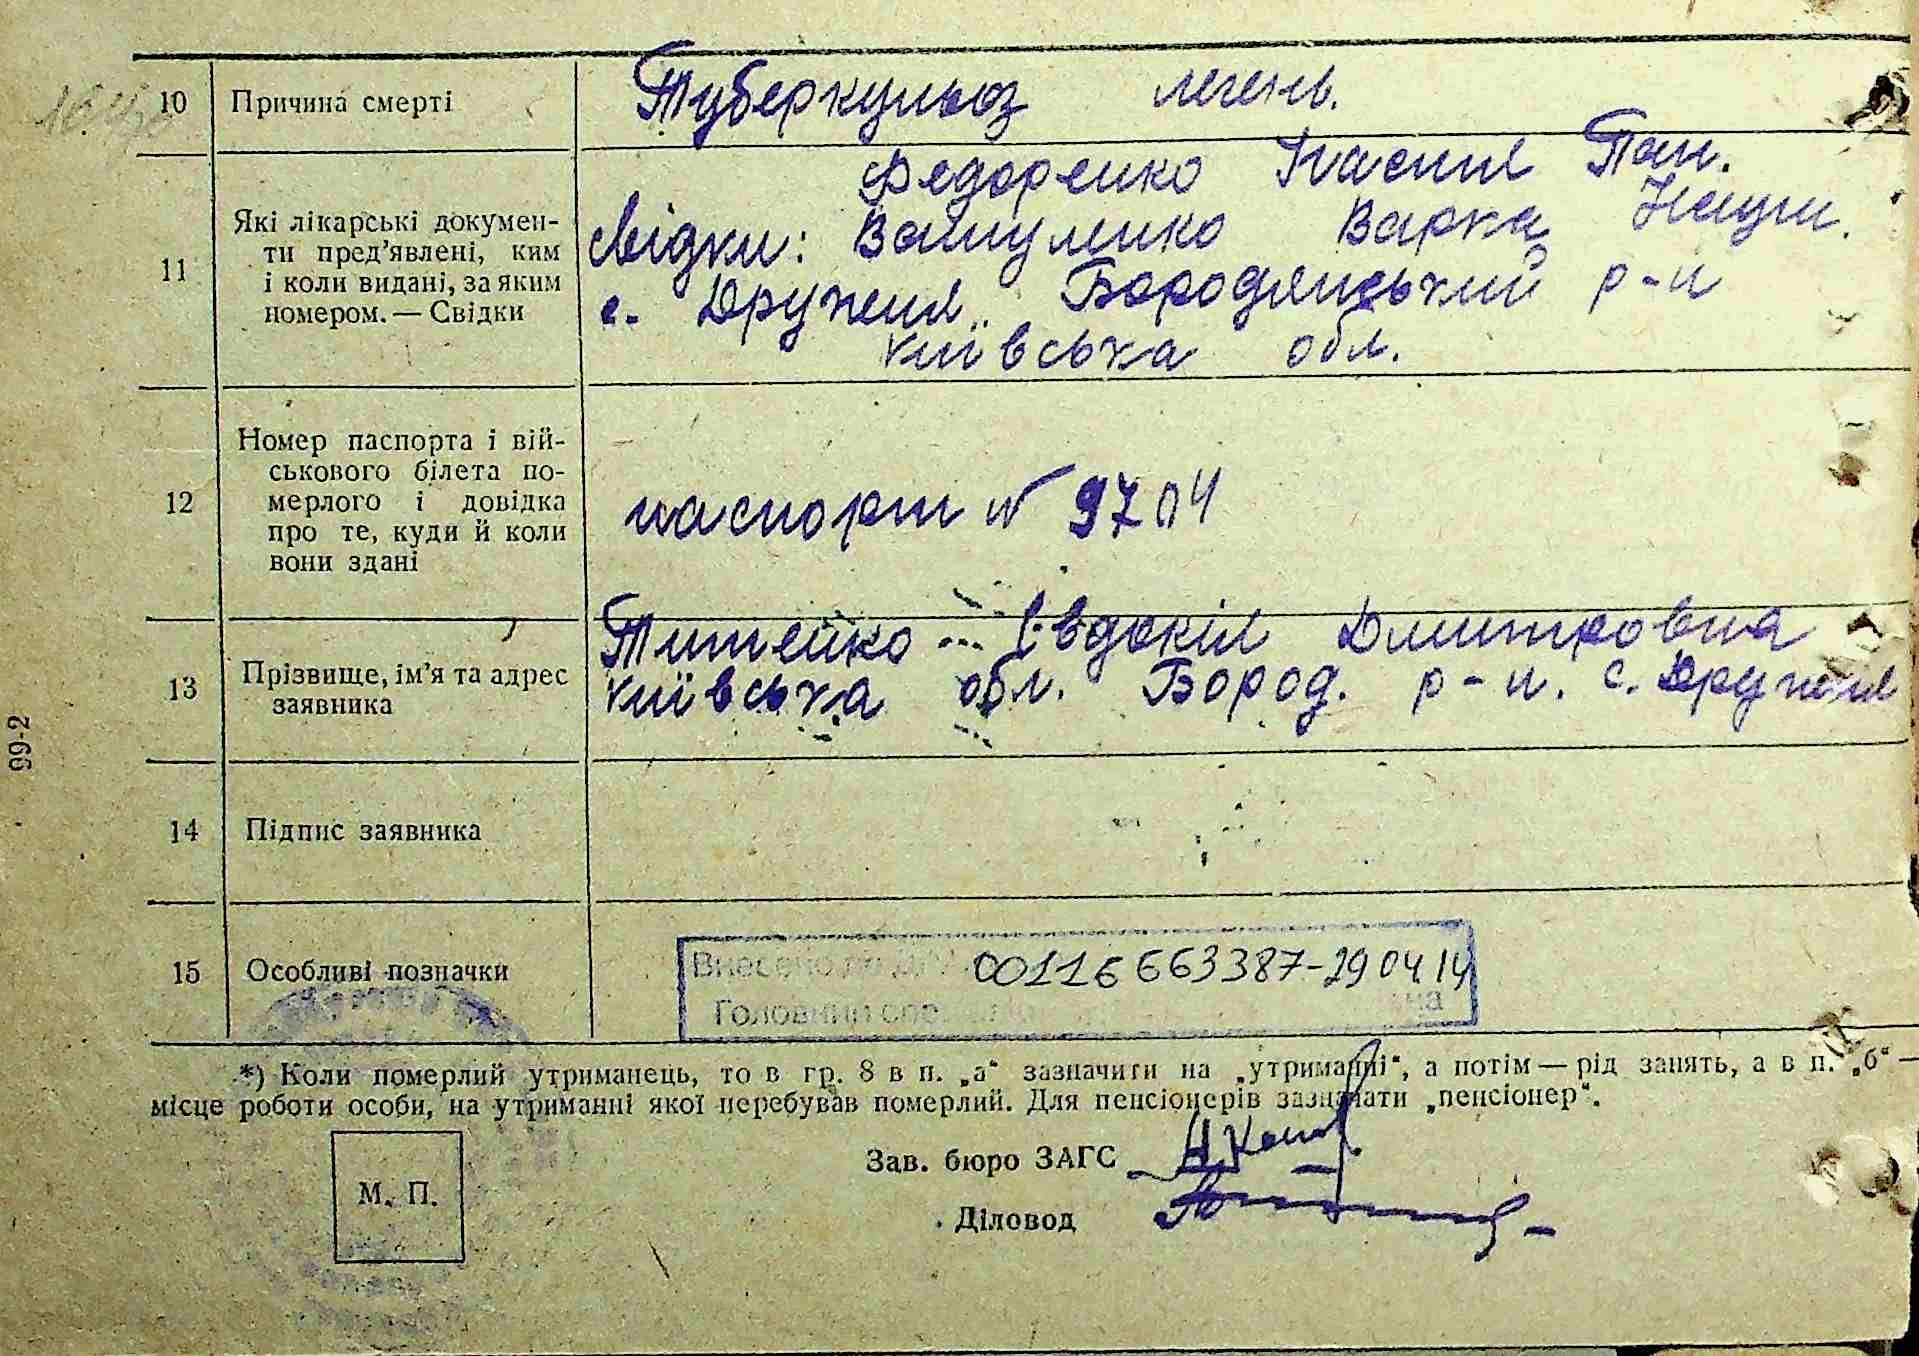 10 Причина смерті
Туберкульоз легень.
11 Які лікарські докумен-
ти пред'явлені, ким
і коли видані, за яким
номером. — Свідки
Федоренко Пан.
Свідки: Варка
с. Дружня Бородянський р-н
київська обл.
12 Номер паспорта і вій-
ськового білета по-
мерлого і довідка
про те, куди й коли
вони здані
паспорт N 9704
13 Прізвище, ім'я та адрес
заявника
Євдокія Дмитровна
київська обл. Бород. р-н. с. Дружня
14 Підпис заявника
15 Особливі позначки
Внесено до 00116663387-290414
Головний
*) Коли померлий утриманець, то в гр. 8 в п. „а“ зазначити на „утриманні“, а потім — рід занять, а в п. „б“ —
місце роботи особи, на утриманні якої перебував померлий. Для пенсіонерів зазначати „пенсіонер“.
М. П.
Зав. бюро ЗАГС
Діловод
99-2